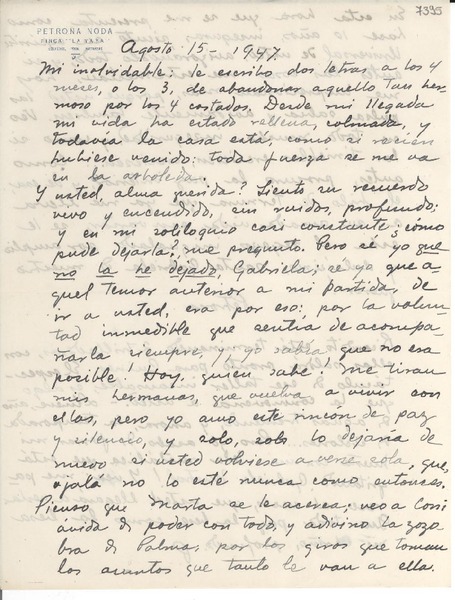 7395
PETRONA NODA
FINCA "LA YAYA"
Agosto 15-1947.
Mi inolvidable: le escribo dos letras, a los 4
meses, o los 3, de abandonar aquello tan her-
moso por los 4 costados. Desde mi llegada
mi vida ha estado rellena, colmada, y
todavía la casa está, como si recien
hubiese venido: toda fuerza se me va
en la arboleda.
Y usted, alma querida? Siento su recuerdo
vivo y encendido, sin ruidos, profundo;
y en mi soliloquio casi constante, ¿como
pude dejarla?, me pregunto. Pero sé yo que
no la he dejado, Gabriela; sé yo que a-
quel temor anterior a mi partida, de
ir a usted, era por eso; por la volun-
tad inmedible que sentía de acompa-
ñarla siempre, y yo sabía que no era
posible! Hoy, quien sabe! Me tiran
mis hermanas, que vuelva a vivir con
ellas, pero yo amo este rincón de paz
y silencio, y solo, solo lo dejaría de
nuevo si usted volviese a verse sola, que,
ojalá no lo esté nunca como entonces.
Pienso que Marta se le acerca; veo a Coni
ávida de poder con todo, y adivino la zozo-
bra de Palma, por los giros que toman
los asuntos que tanto le van a ella.